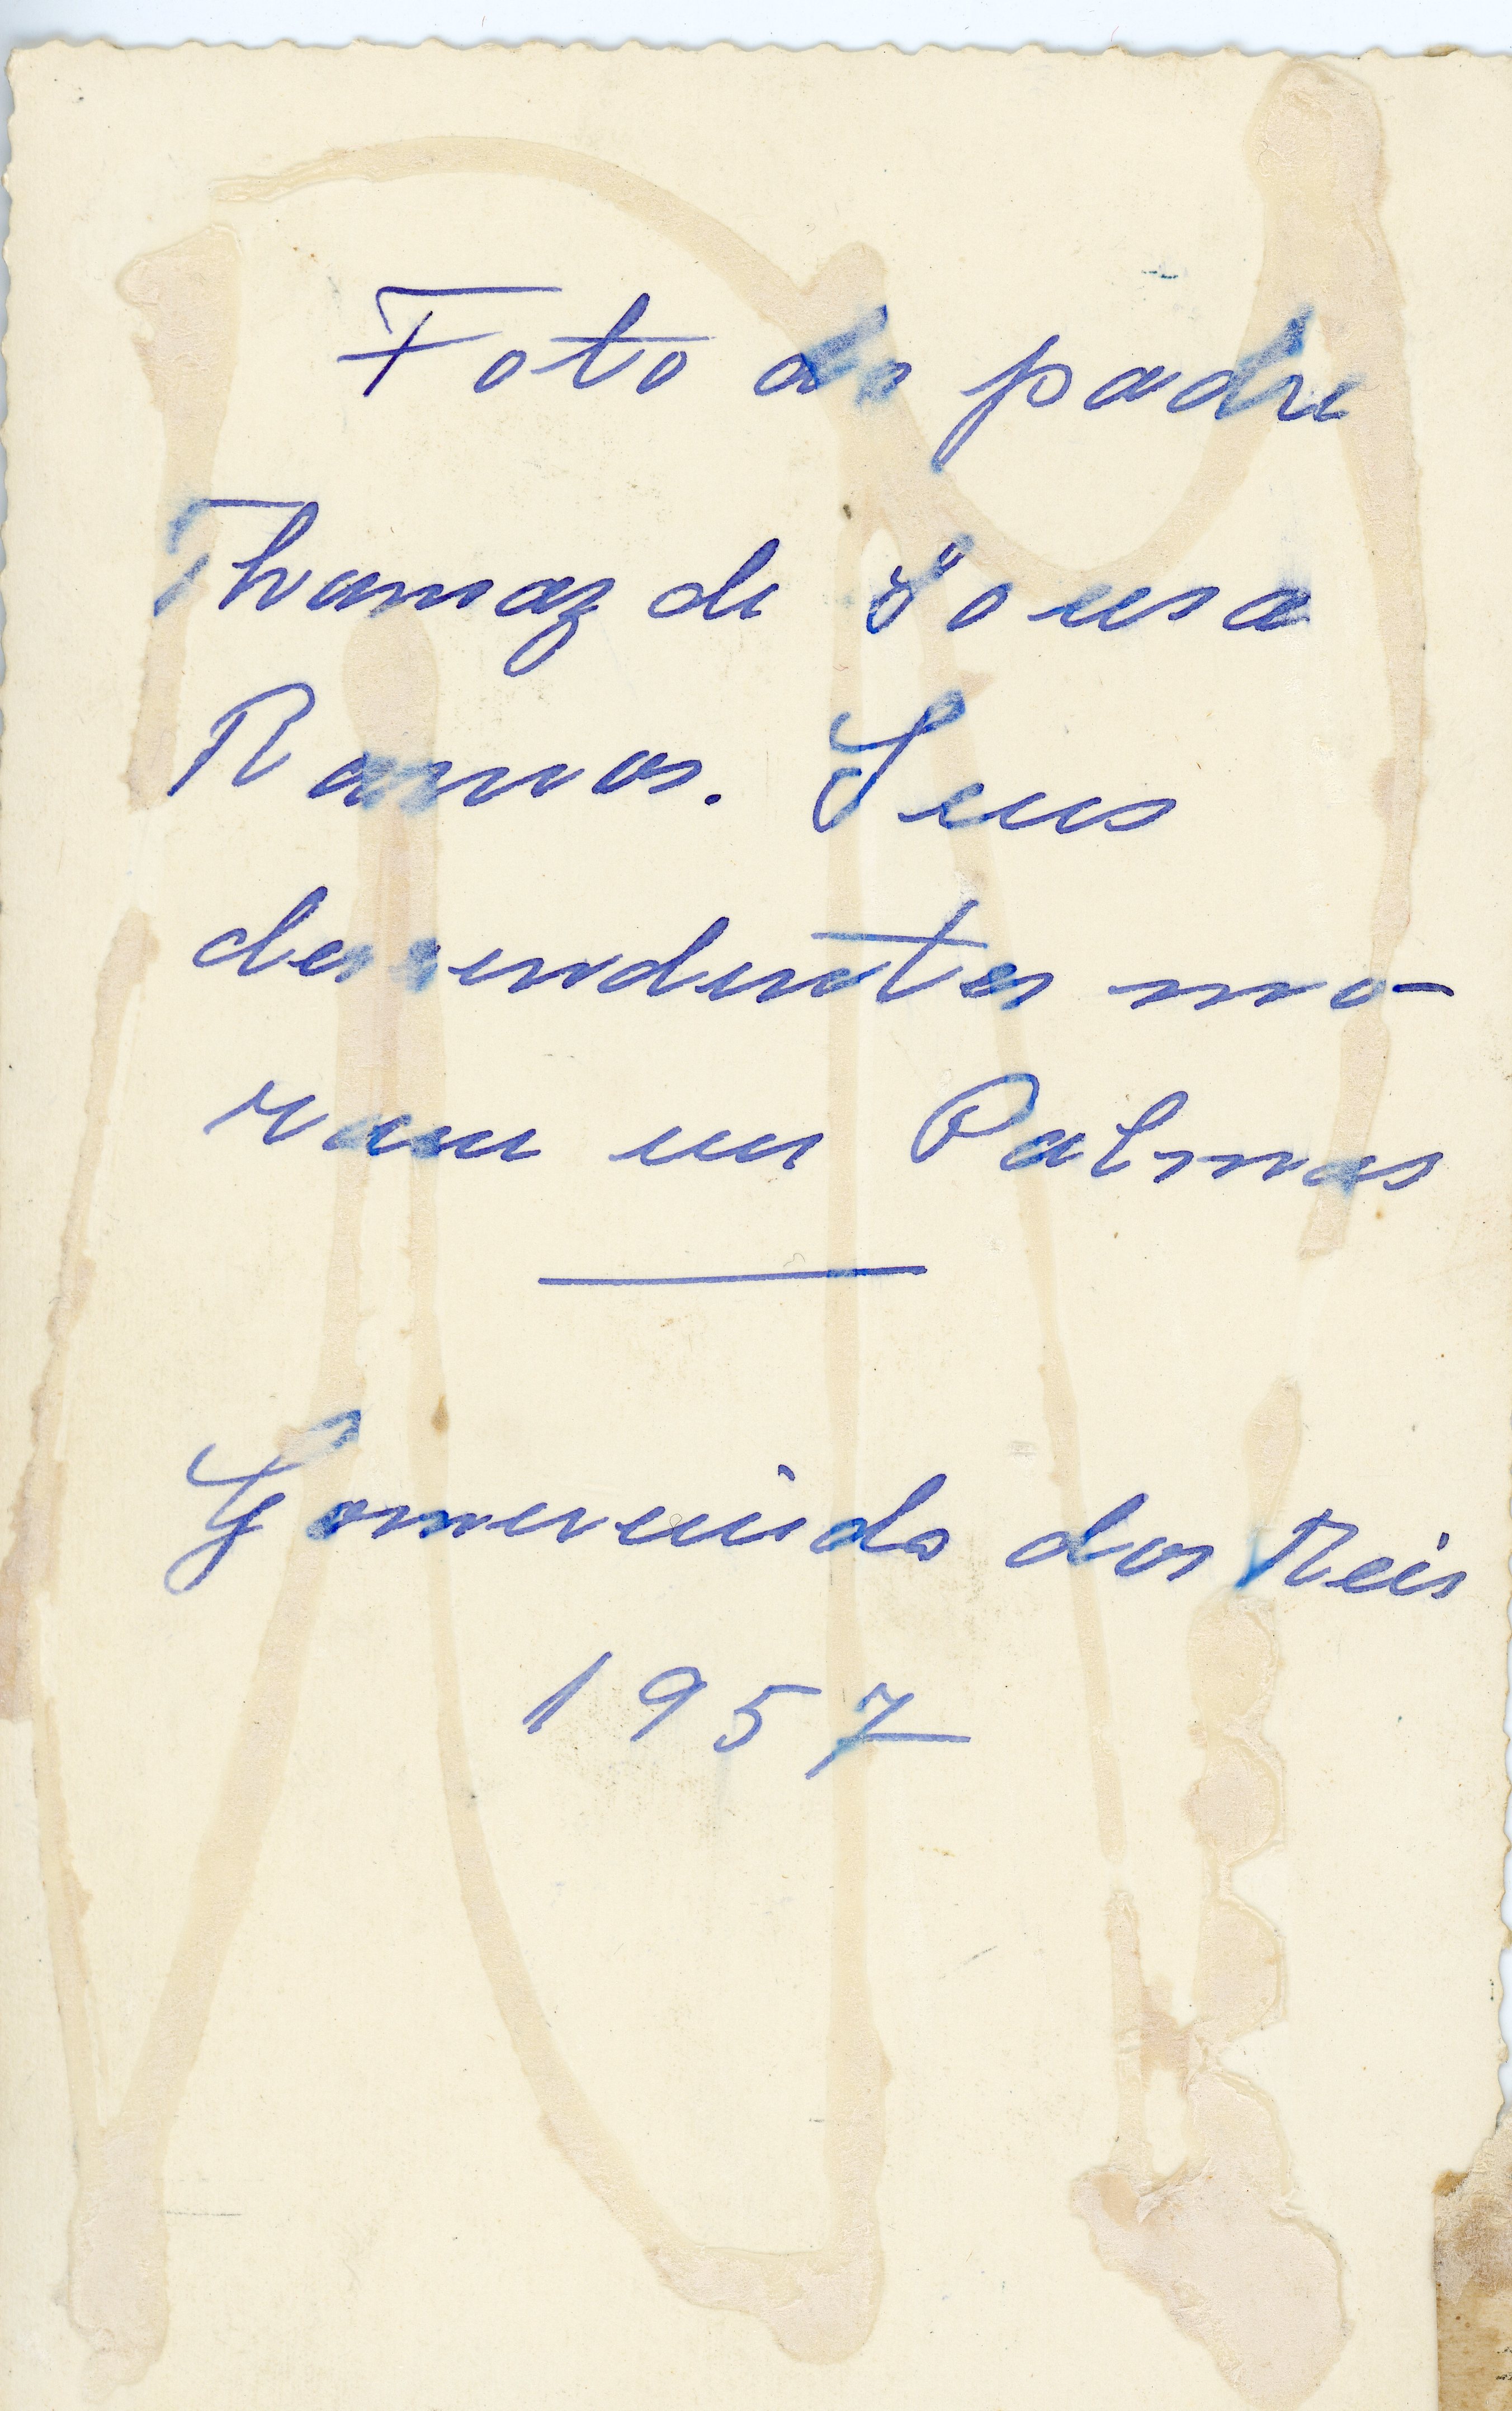 Foto do padre
Thomaz de Sousa
Ramos. Seus
descendentes mo-
ram em Palmas
Gomercindo dos Reis
1957